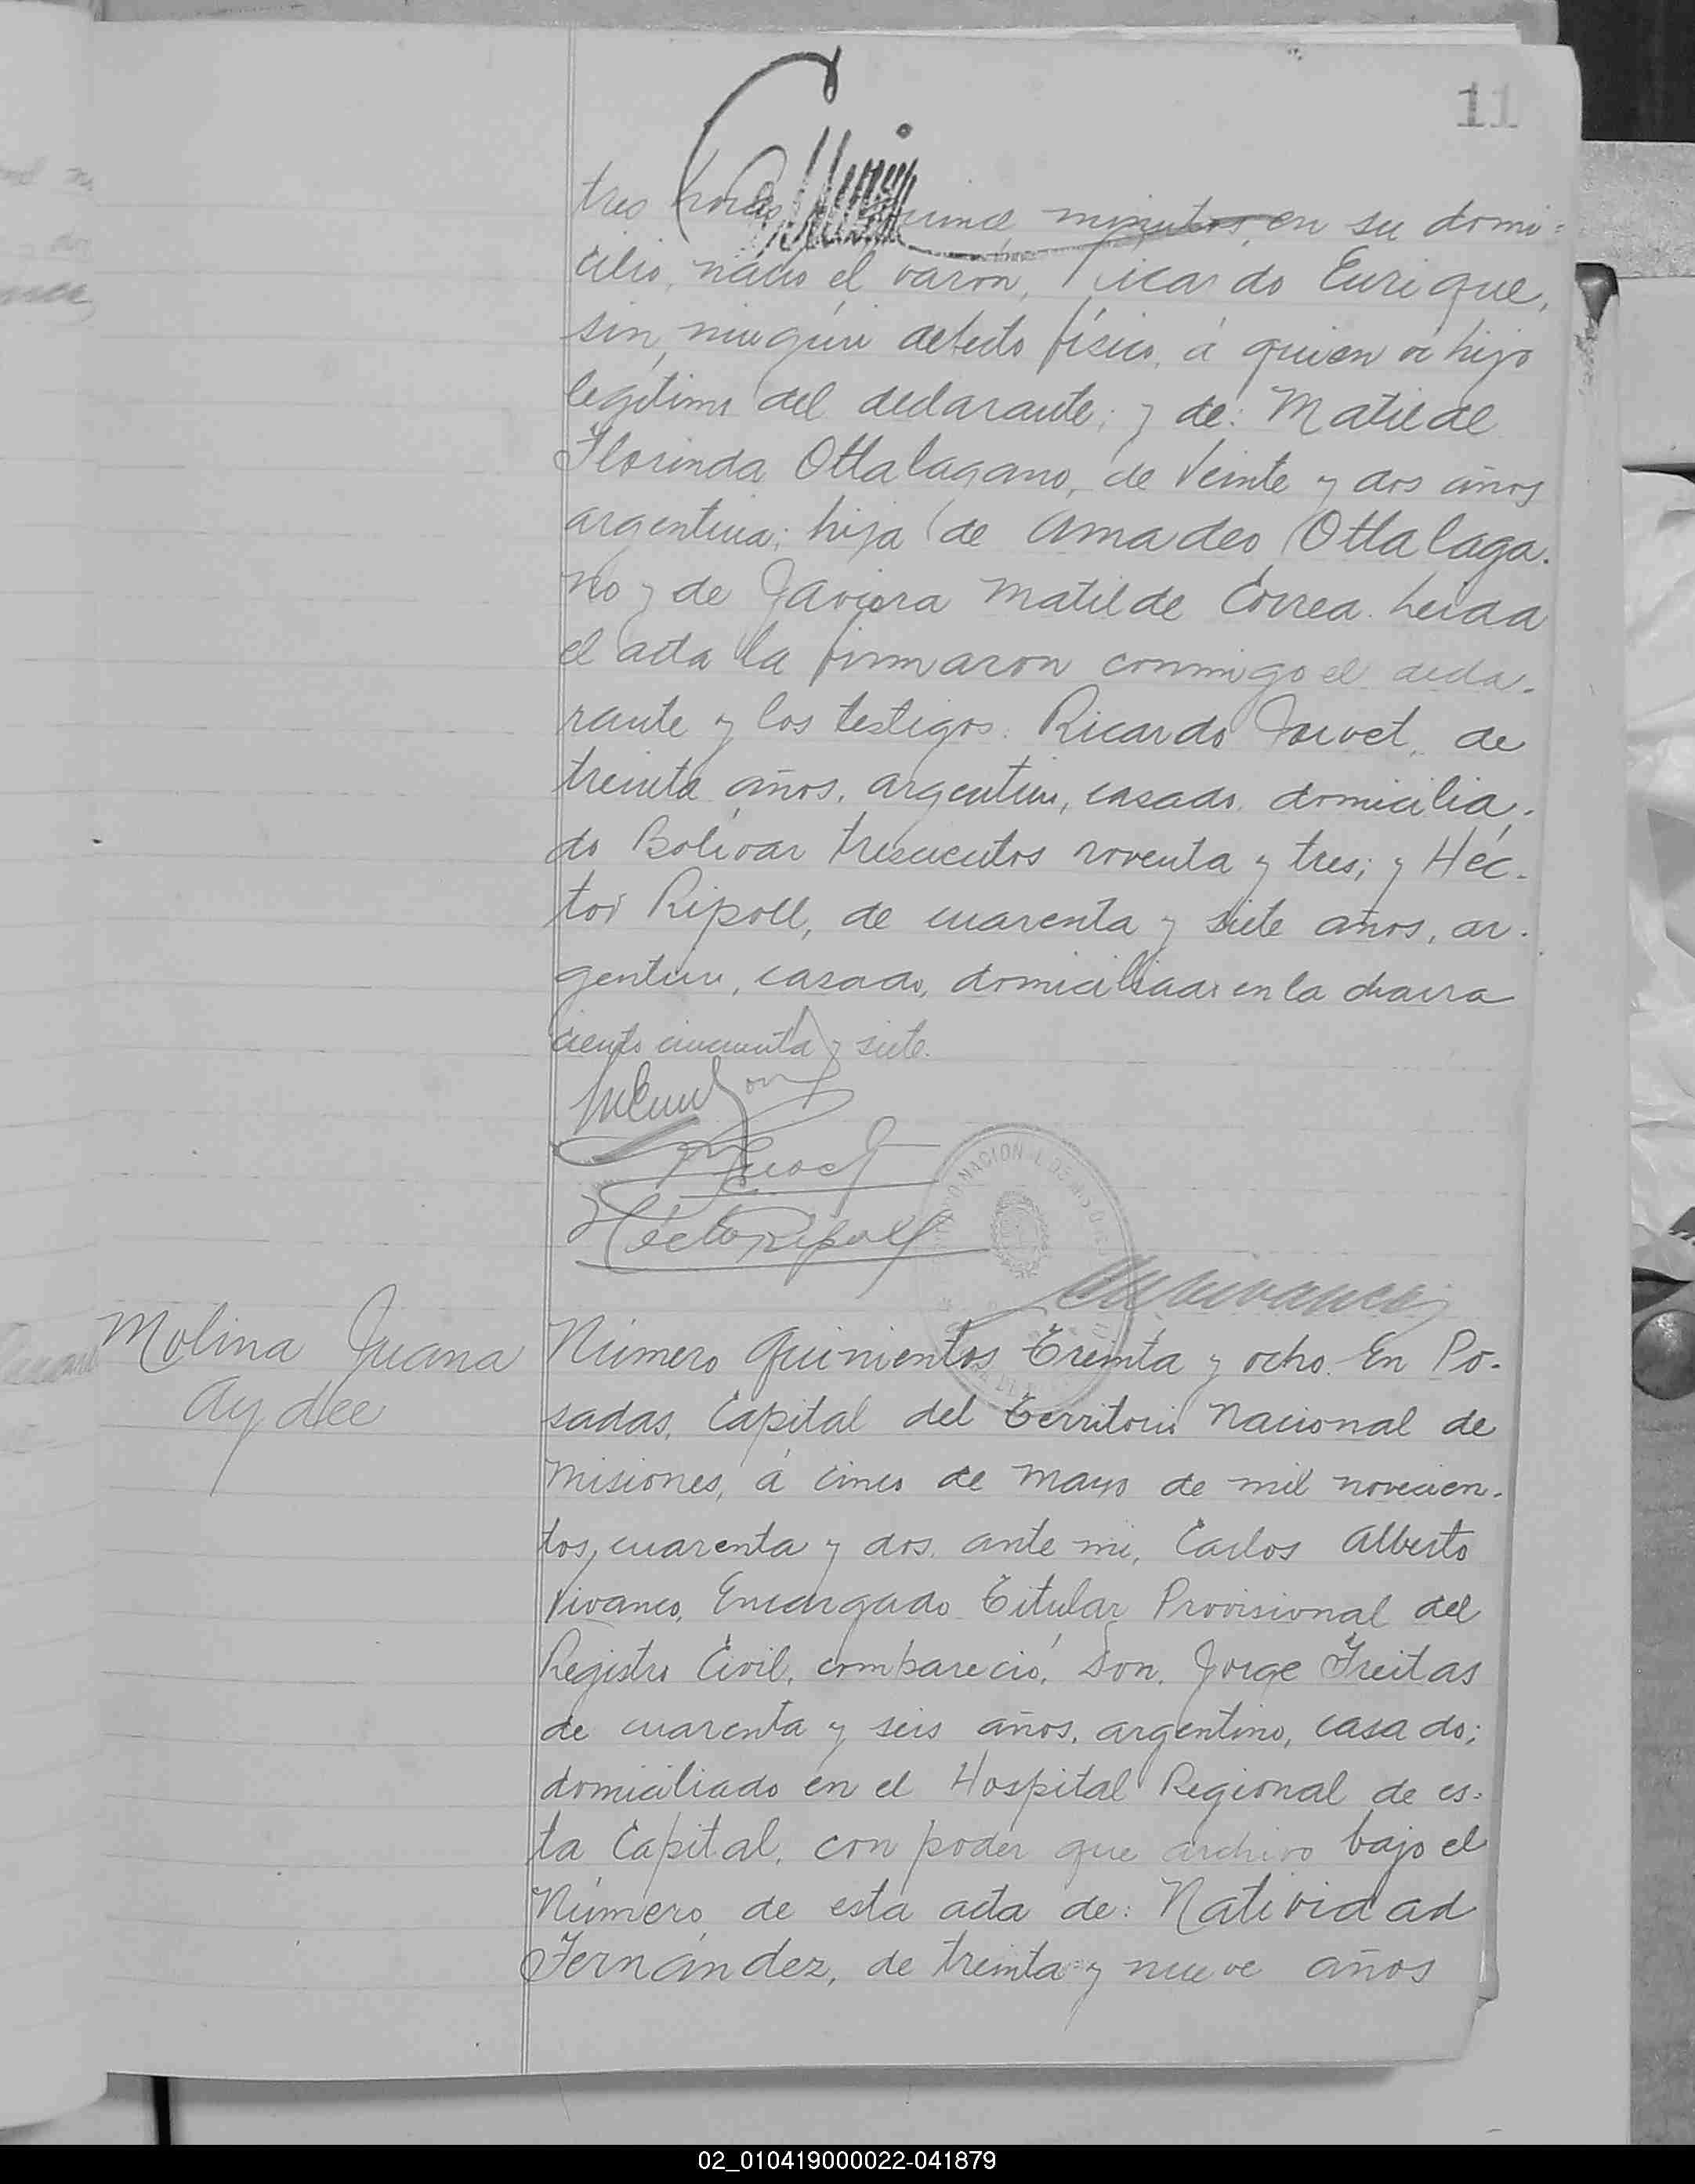 11
tres horas quince minutos, en su domi-
cilio, nació el varón, Ricardo Enrique,
sin ningún defecto físico, á quien vi hijo
legítimo del declarante; y de: Matilde
Florinda Ottalagano, de Veinte y dos años
argentina; hija de Amadeo Ottalaga-
no y de Javiera Matilde Correa. Leida
el acta la firmaron conmigo el decla-
rante y los testigos: Ricardo de
treinta años, argentino, casado, domicilia-
do Bolívar trescientos noventa y tres; y Héc-
tor Ripoll, de cuarenta y siete años, ar-
gentino, casado, domiciliado en la chacra
ciento cincuenta y siete.
Héctor Ripoll
Molina Juana
Aydee
Número Quinientos Treinta y ocho. En Po-
sadas, Capital del Territorio Nacional de
Misiones, á cinco de Mayo de mil novecien-
tos cuarenta y dos, ante mi, Carlos Alberto
Vivanco, Encargado Titular Provisional del
Registro Civil, compareció, Don, Jorge Freitas
de cuarenta y seis años, argentino, casado;
domiciliado en el Hospital Regional de es-
ta Capital, con poder que archivo bajo el
Número de esta acta de: Natividad
Fernández, de treinta y nueve años
02_010419000022-041879